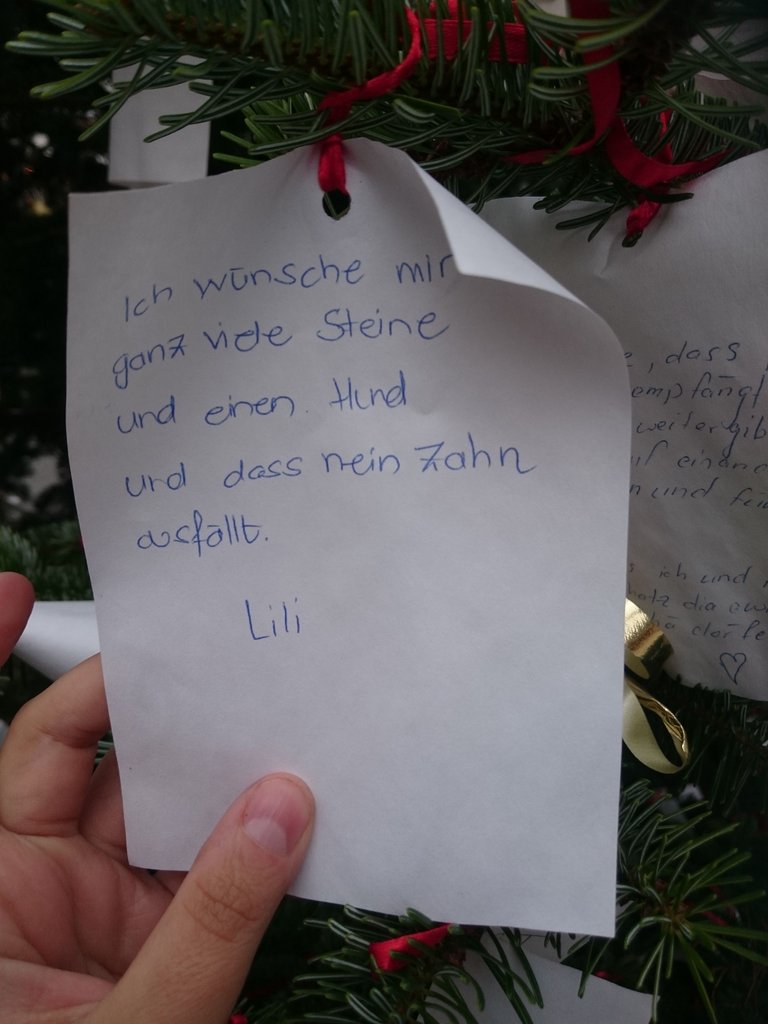 Ich wünsche mir
ganz viele Steine
und einen Hund
und dass mein Zahn
ausfällt.
Lili
, dass
empfängt
weitergib
einand
und
ich und
dia
♡